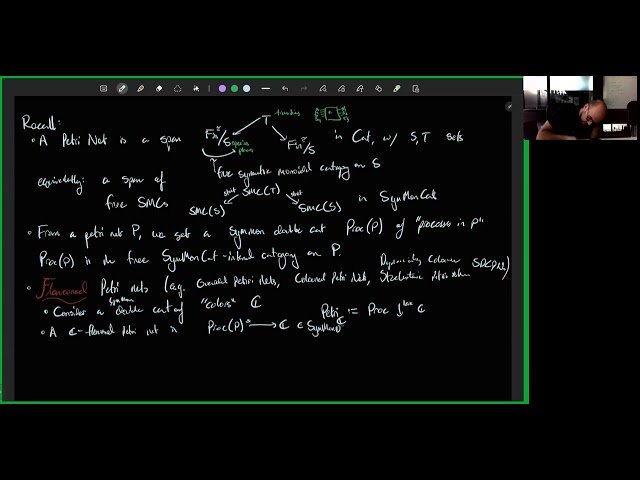 Recall:
• A Petri Net is a span Fin≃/S ← T → Fin≃/S in Cat, w/ S, T sets
transitions
species
places
free symmetric monoidal category on S
equivalently: a span of free SMCs SMC(S) ← SMC(T) → SMC(S) in SymMonCat
strict
strict
• From a petri net P, we get a Symmon double cat Proc(P) of "processes in P".
Proc(P) is the free SymMonCat-internal category on P.
• Flavoured Petri nets (e.g. Petri nets, Coloured Petri Nets, Stochastic Petri nets, Dynamically Coloured
• Consider a symmon double cat of "colors" ℂ
• A ℂ-flavoured petri net is Proc(P) → ℂ ∈ Petri_ℂ := Proc ↓ lax ℂ